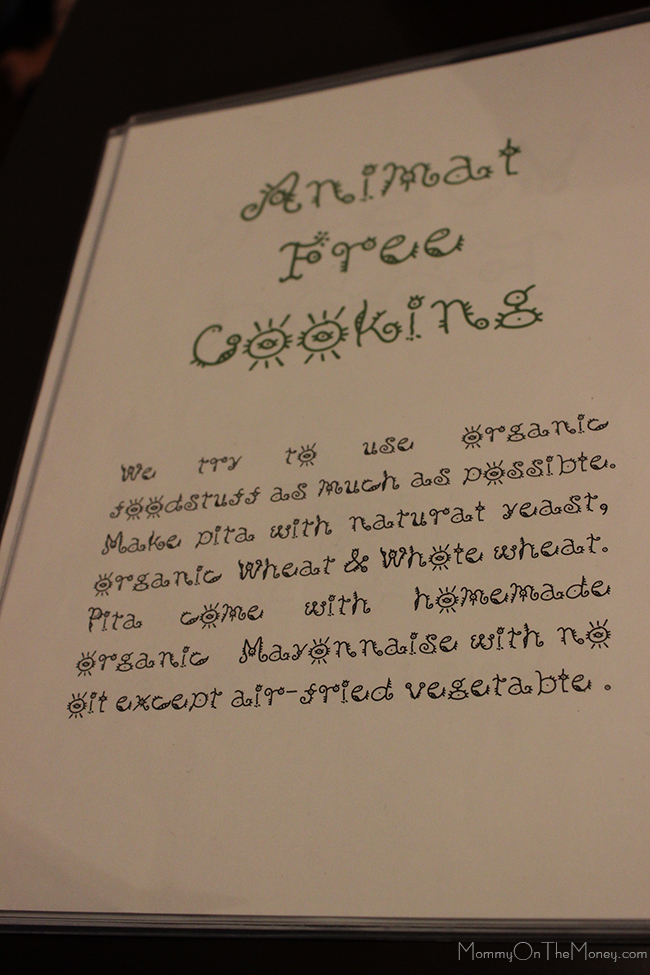 Animal
Free
Cooking
We try to use organic
foodstuff as much as possible.
Make pita with natural yeast,
organic Wheat & Whole wheat.
Pita come with homemade
organic Mayonnaise with no
oil except air-fried vegetable .
MommyOnTheMoney.com